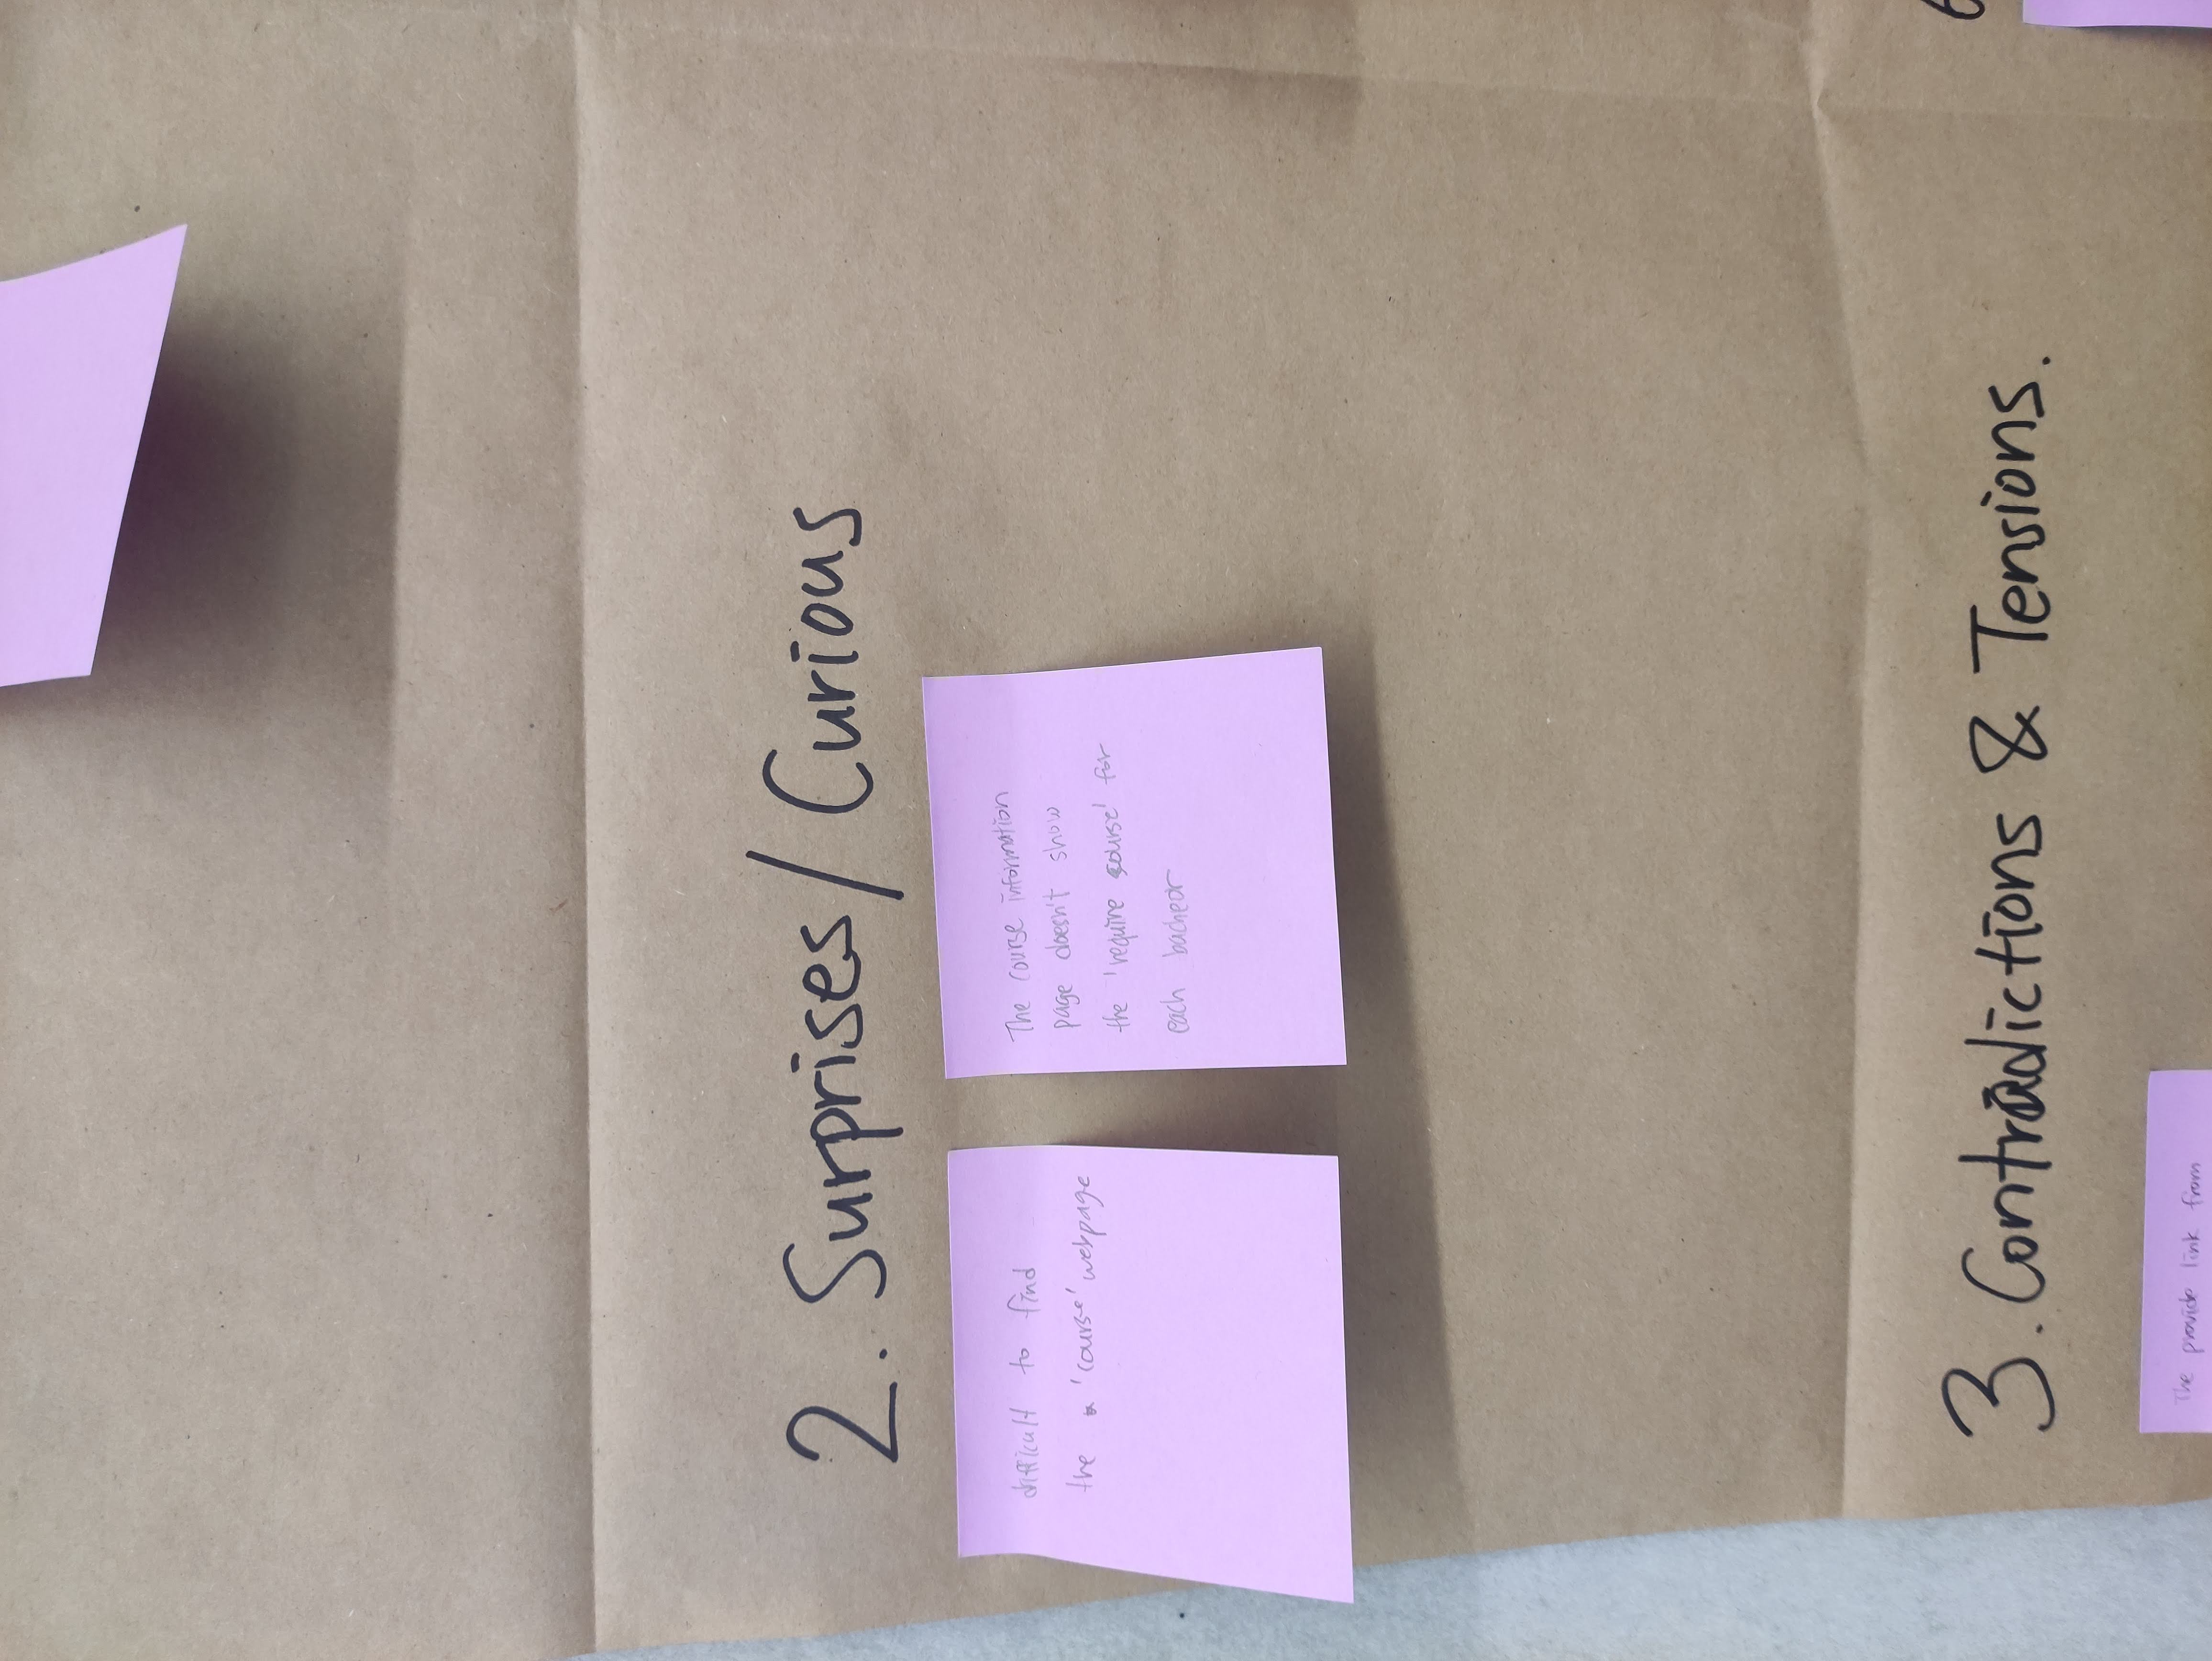 2. Surprises / Curious
difficult to find
the 'course' webpage
The course information
page doesn't show
the 'require course' for
each bacheor
3. Contradictions & Tensions.
The provide link from